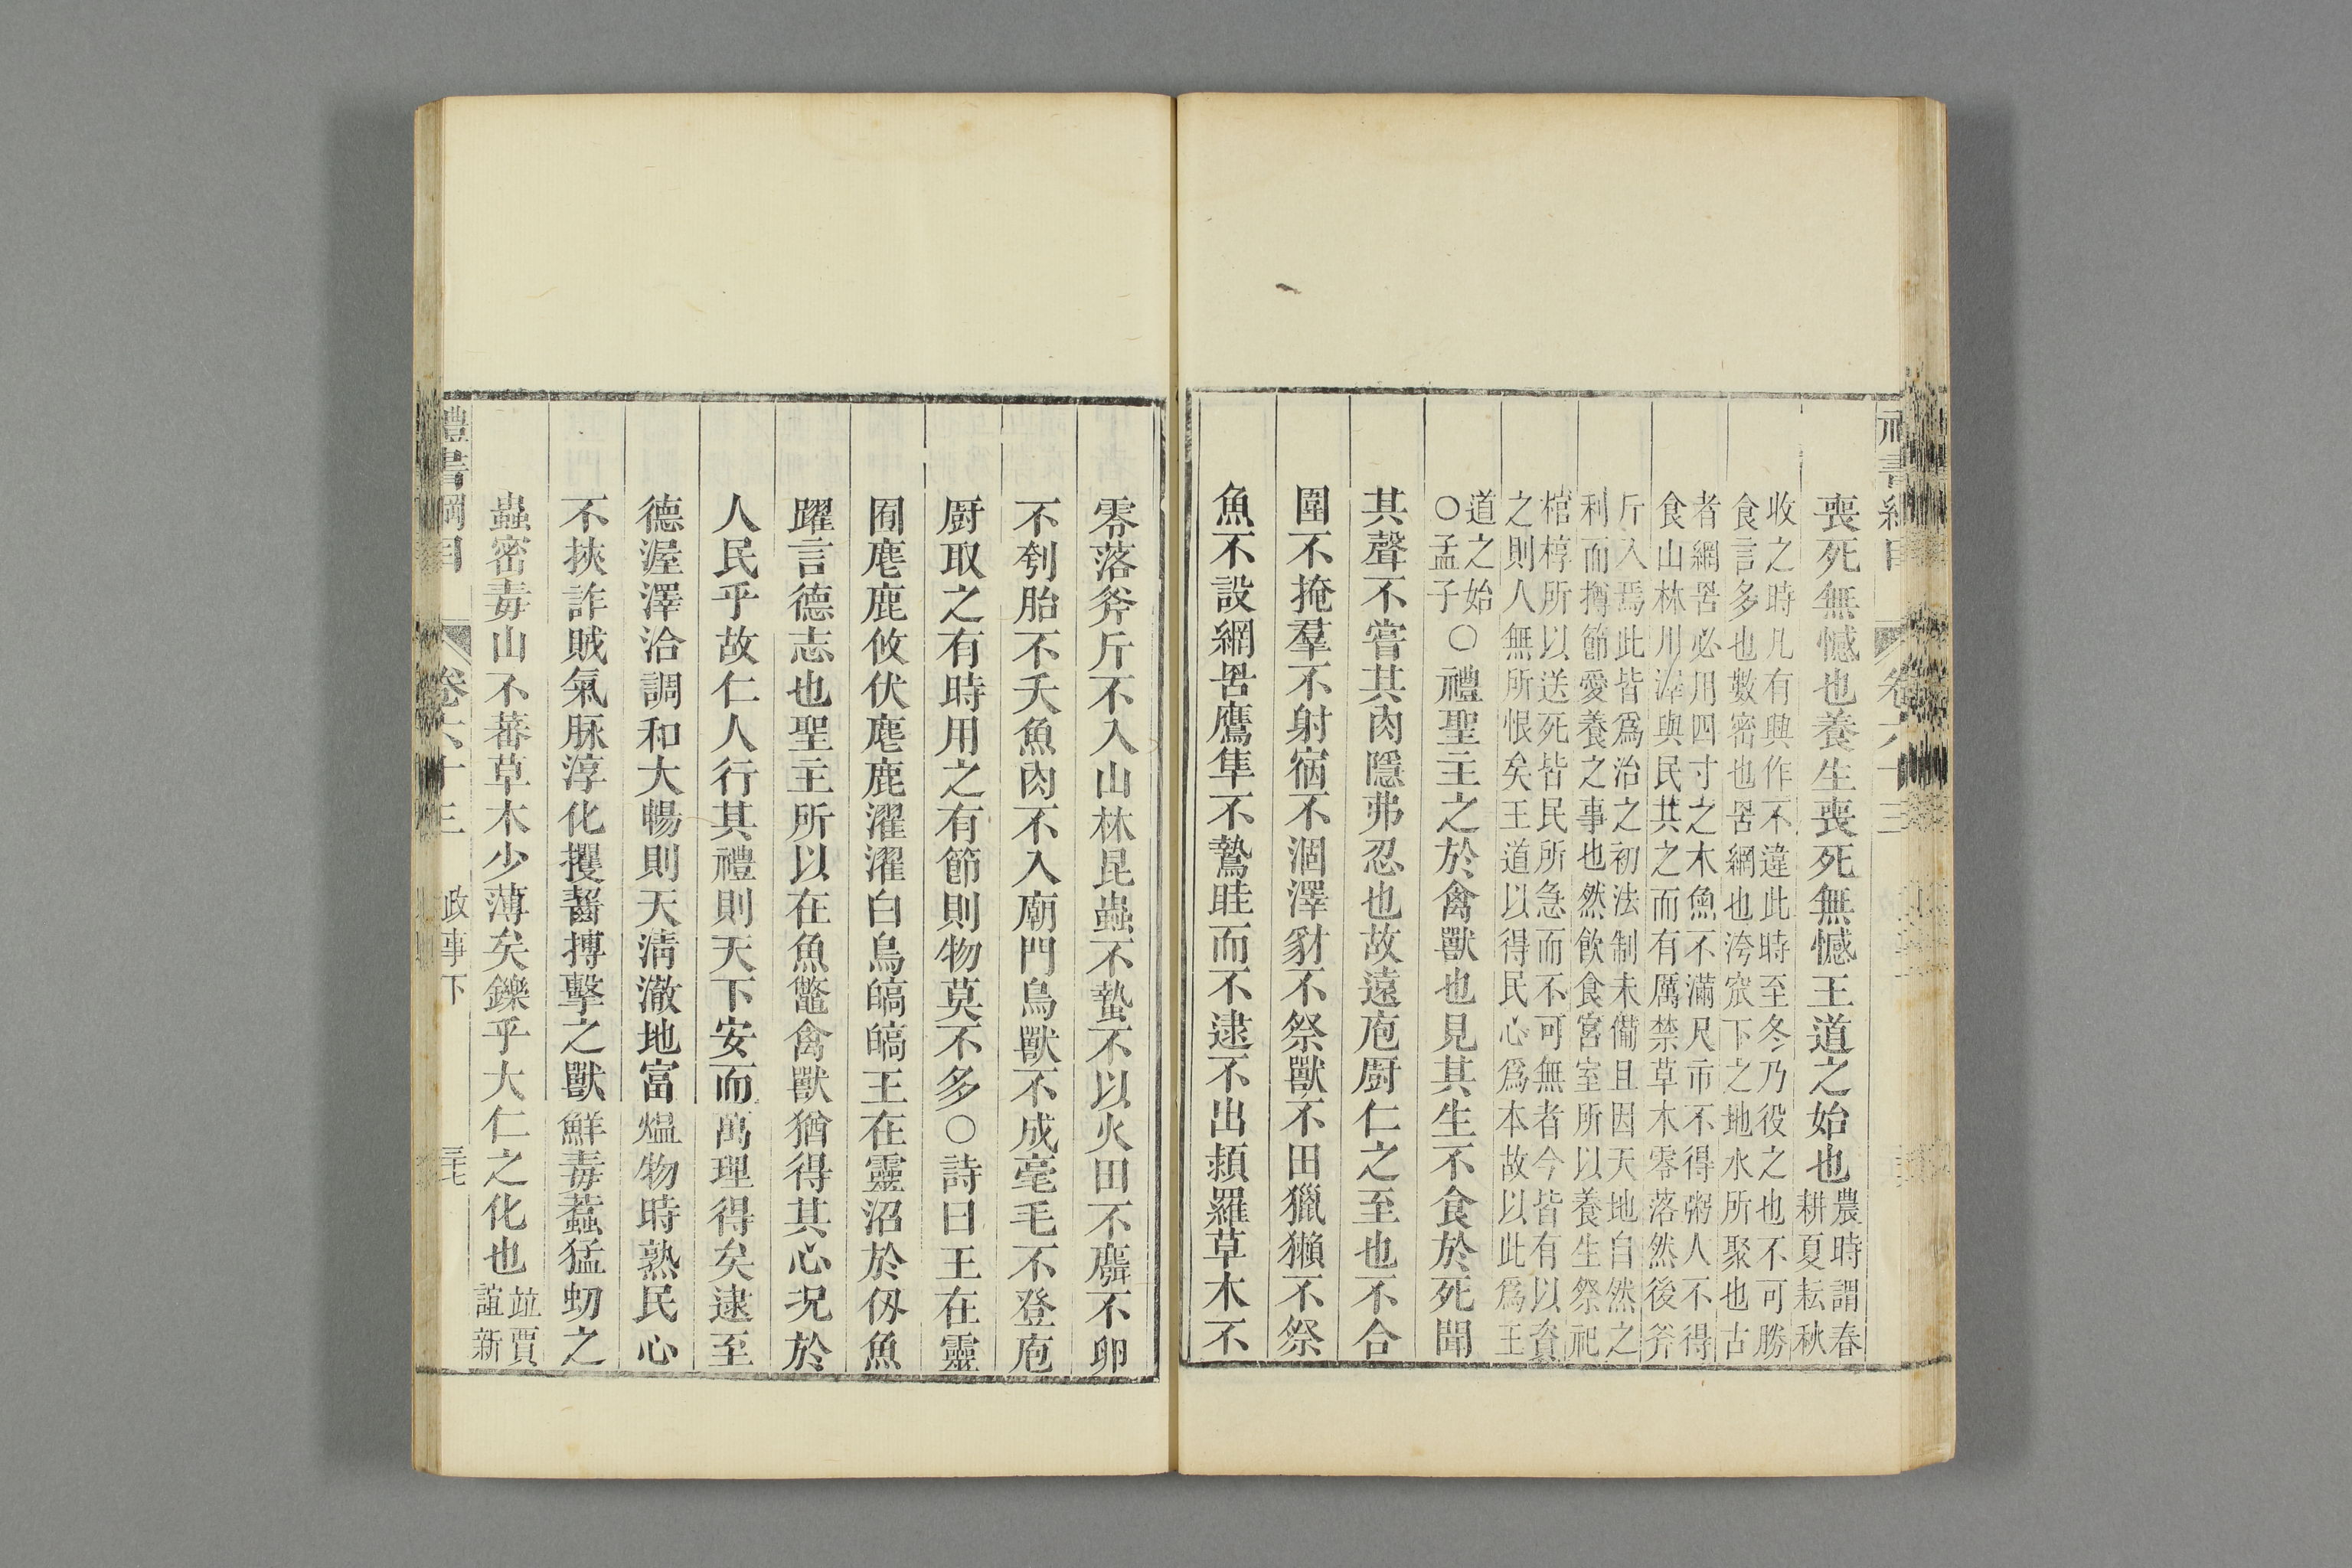 喪死無憾也養生喪死無憾王道之始也農時謂春耕夏耘秋
收之時凡有興作不違此時至冬乃役之也不可勝
食言多也數密也罟網也洿窊下之地水所聚也古
者網罟必用四寸之木魚不滿尺市不得粥人不得
食山林川澤與民共之而有厲禁草木零落然後斧
斤入焉此皆爲治之初法制未備且因天地自然之
利而撙節愛養之事也然飲食宮室所以養生祭祀
棺椁所以送死皆民所急而不可無者今皆有以資
之則人無所恨矣王道以得民心爲本故以此爲王
道之始
○孟子○禮聖王之於禽獸也見其生不食於死聞
其聲不嘗其肉隱弗忍也故遠庖厨仁之至也不合
圍不掩羣不射宿不涸澤豺不祭獸不田獵獺不祭
魚不設網罟鷹隼不鷙眭而不逮不出頴羅草木不
零落斧斤不入山林昆蟲不蟄不以火田不麛不卵
不刳胎不夭魚肉不入廟門鳥獸不成毫毛不登庖
厨取之有時用之有節則物莫不多○詩曰王在靈
囿麀鹿攸伏麀鹿濯濯白鳥皜皜王在靈沼於仞魚
躍言德志也聖主所以在魚鼈禽獸猶得其心況於
人民乎故仁人行其禮則天下安而萬理得矣逮至
德渥澤洽調和大暢則天清澈地富熅物時熟民心
不挾詐賊氣脉淳化攫齧搏擊之獸鮮毒蠚猛蚏之
蟲密毒山不蕃草木少薄矣鑠乎大仁之化也竝賈誼新
禮書綱目 卷六十三 政事下 三七